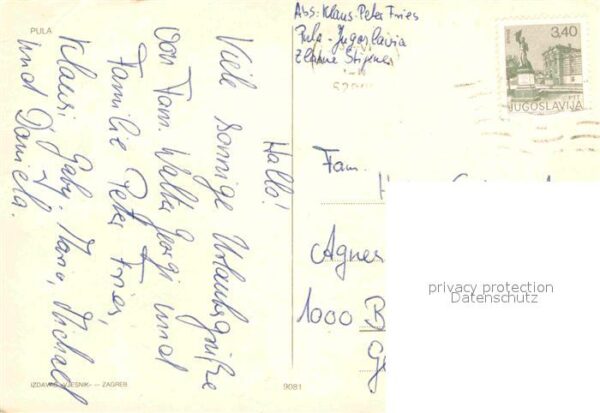 PULA
Hallo!
Viele sonnige Urlaubsgrüße
von Fam. Walter Georgi und
Familie Peter Fries,
Klaus, Gaby, Mario, Michael
und Daniela.
IZDAVAČ »VJESNIK« — ZAGREB
9081
Abs: Klaus-Peter Fries
Pula - Jugoslavia
Zlatne Stijene
3,40
JUGOSLAVIJA
Fam.
Agnes
1000 B
privacy protection
Datenschutz